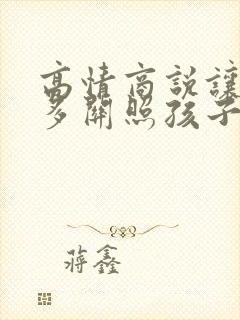 高情商说讓
多關照孩子
蒋鑫